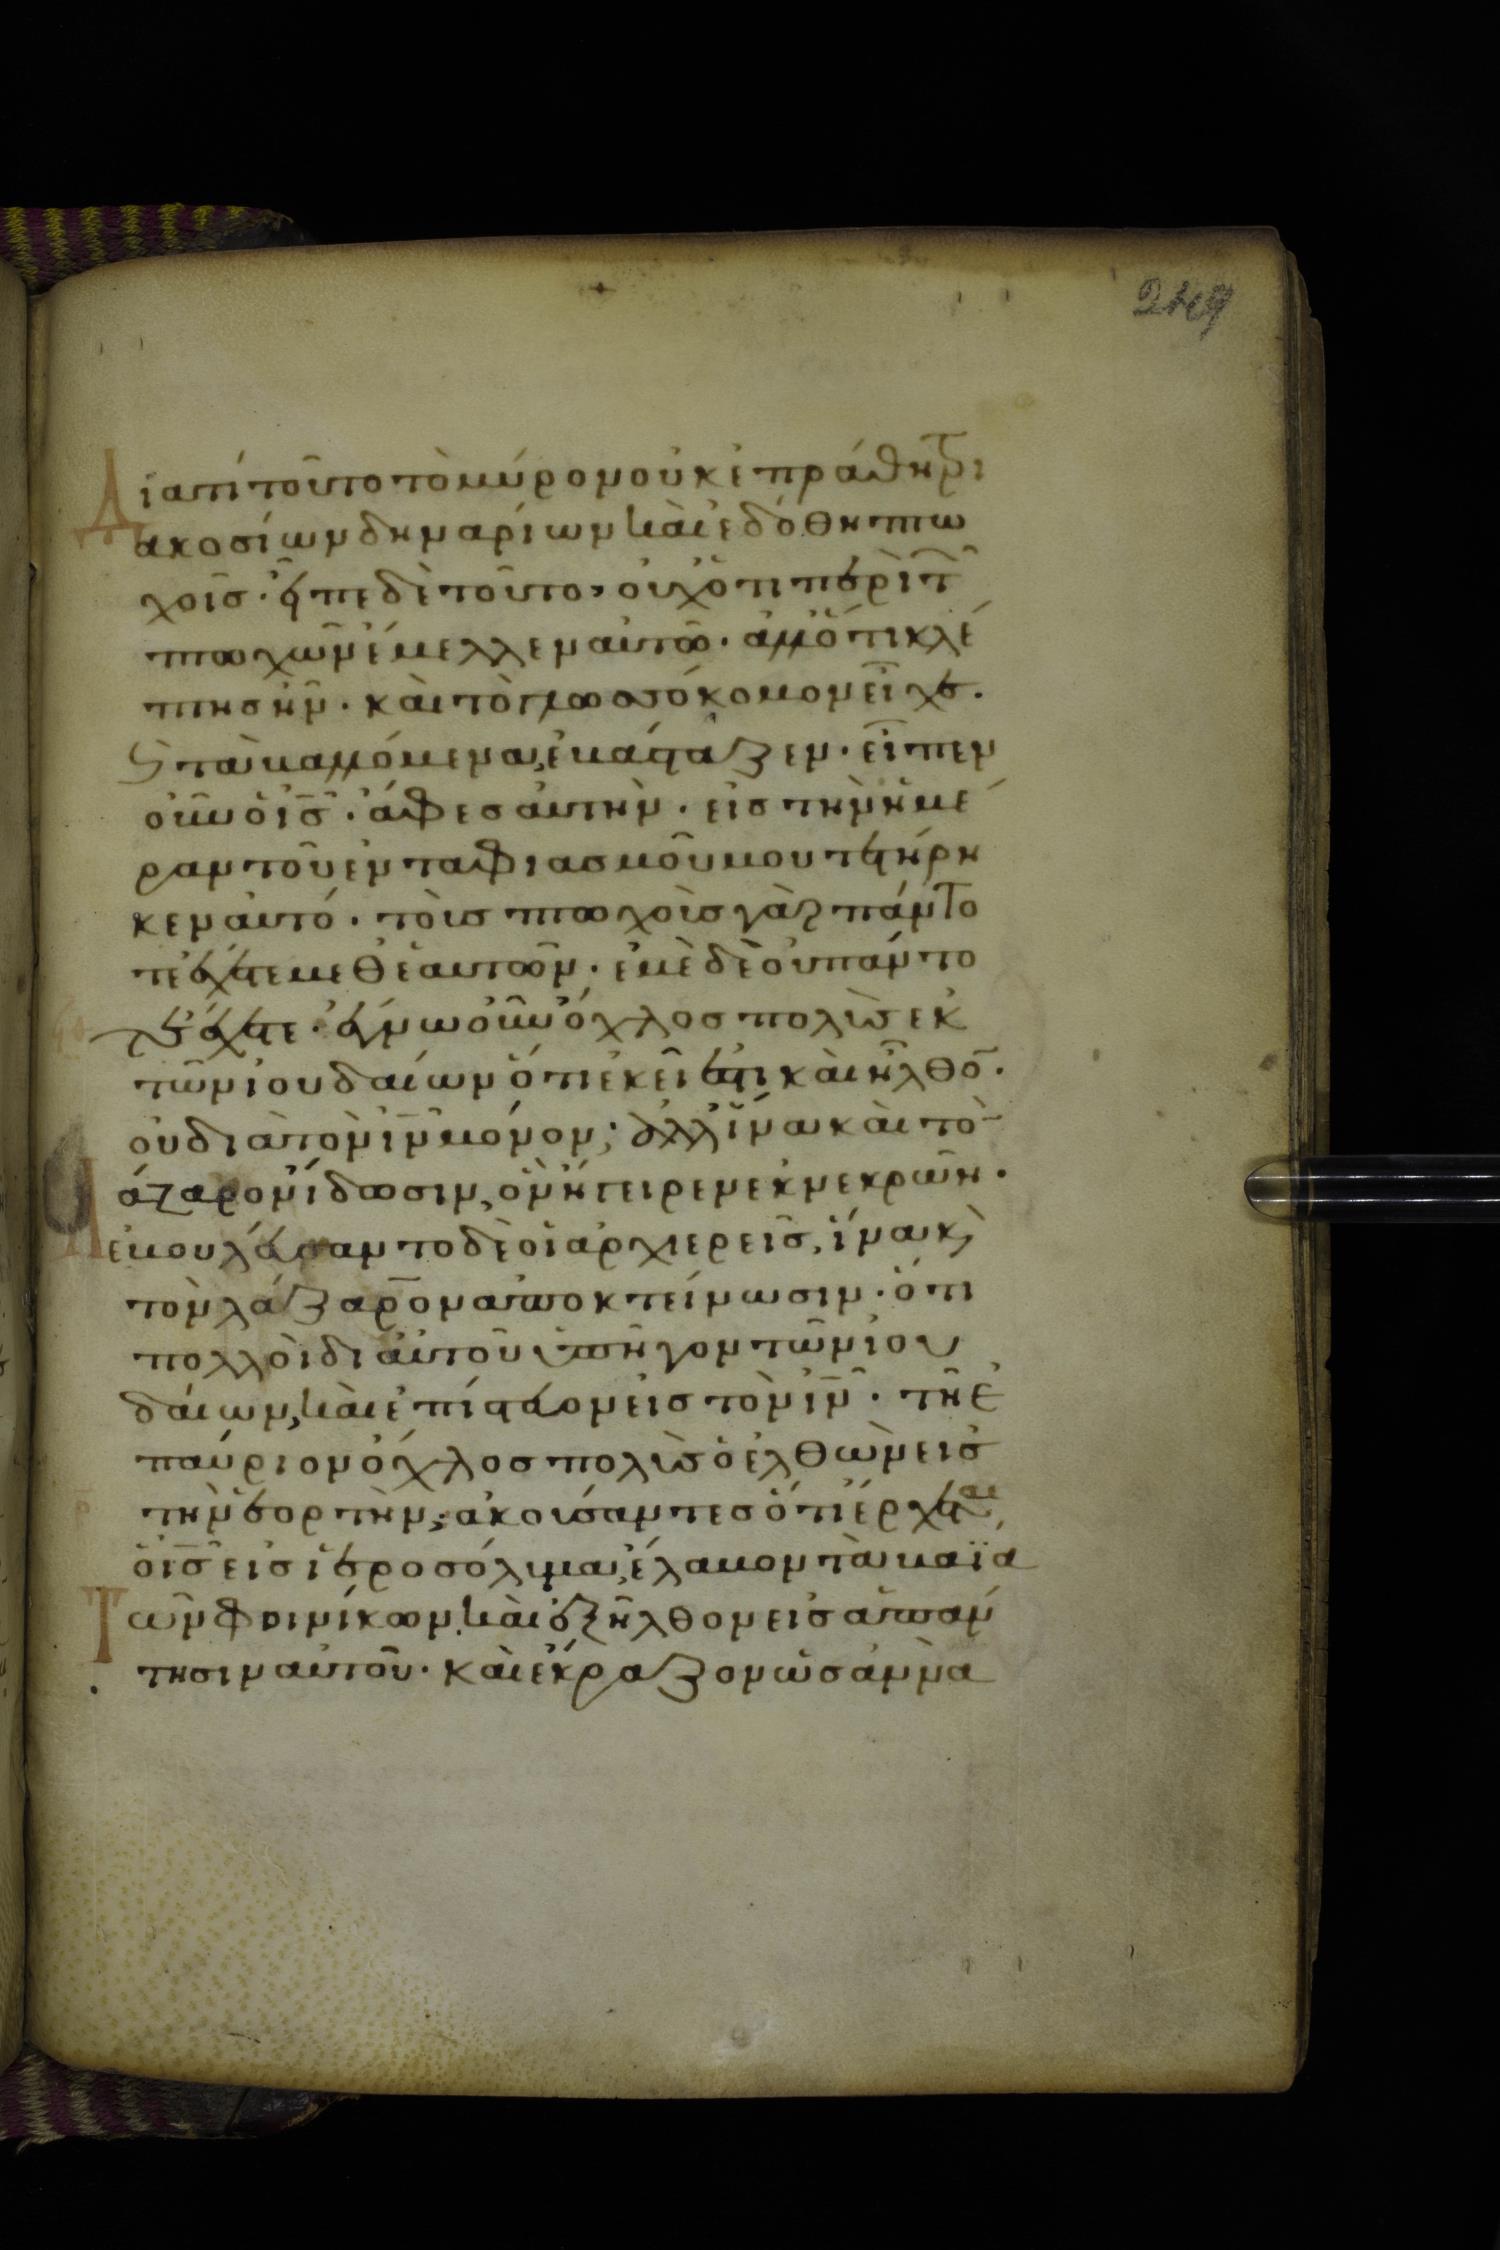 249
Διατί τοῦτο τὸ μύρον οὐκ ἐπράθη τρι
ακοσίων δηναρίων καὶ ἐδόθη πτω
χοῖς · εἶπε δὲ τοῦτο, οὐχ ὅτι περὶ τῶν
πτωχῶν ἔμελλεν αὐτῶ · ἀλλ' ὅτι κλέ
πτης ἦν · καὶ τὸ γλωσσόκομον εἶχε ·
καὶ τὰ βαλλόμενα, ἐβάσταζεν · εἶπεν
οὖν ὁ ις · ἄφες αὐτὴν · εἰς τὴν ἡμέ
ραν τοῦ ἐνταφιασμοῦ μου τετήρη
κεν αὐτό · τοὺς πτωχοὺς γὰρ πάντο
τε ἔχετε μεθ' ἑαυτῶν · ἐμὲ δὲ οὐ πάντο
τε ἔχετε · ἔγνω οὖν ὄχλος πολὺς ἐκ
τῶν ἰουδαίων ὅτι ἐκεῖ ἐστι καὶ ἦλθο̄ ·
οὐ διὰ τὸν ιν μόνον · ἀλλ' ἵνα καὶ τὸ̄
λάζαρον ἴδωσιν, ὃν ἤγειρεν ἐκ νεκρῶν ·
ἐβουλεύσαντο δὲ οἱ ἀρχιερεῖς, ἵνα κ
τὸν λάζαρον ἀποκτείνωσιν · ὅτι
πολλοὶ δι' αὐτοῦ ὑπῆγον τῶν ἰου
δαίων, καὶ ἐπίστευον εἰς τὸν ιν · τῆ ἐ
παύριον ὄχλος πολὺς ὁ ἐλθὼν εἰς
τὴν ἑορτὴν, ἀκούσαντες ὅτι ἔρχεται
ὁ ις εἰς ἱεροσόλυμα, ἔλαβον τὰ βαϊα
Τῶν φοινίκων, καὶ ἐξῆλθον εἰς ἀπάν
τησιν αὐτοῦ · καὶ ἔκραζον ὡσαννὰ